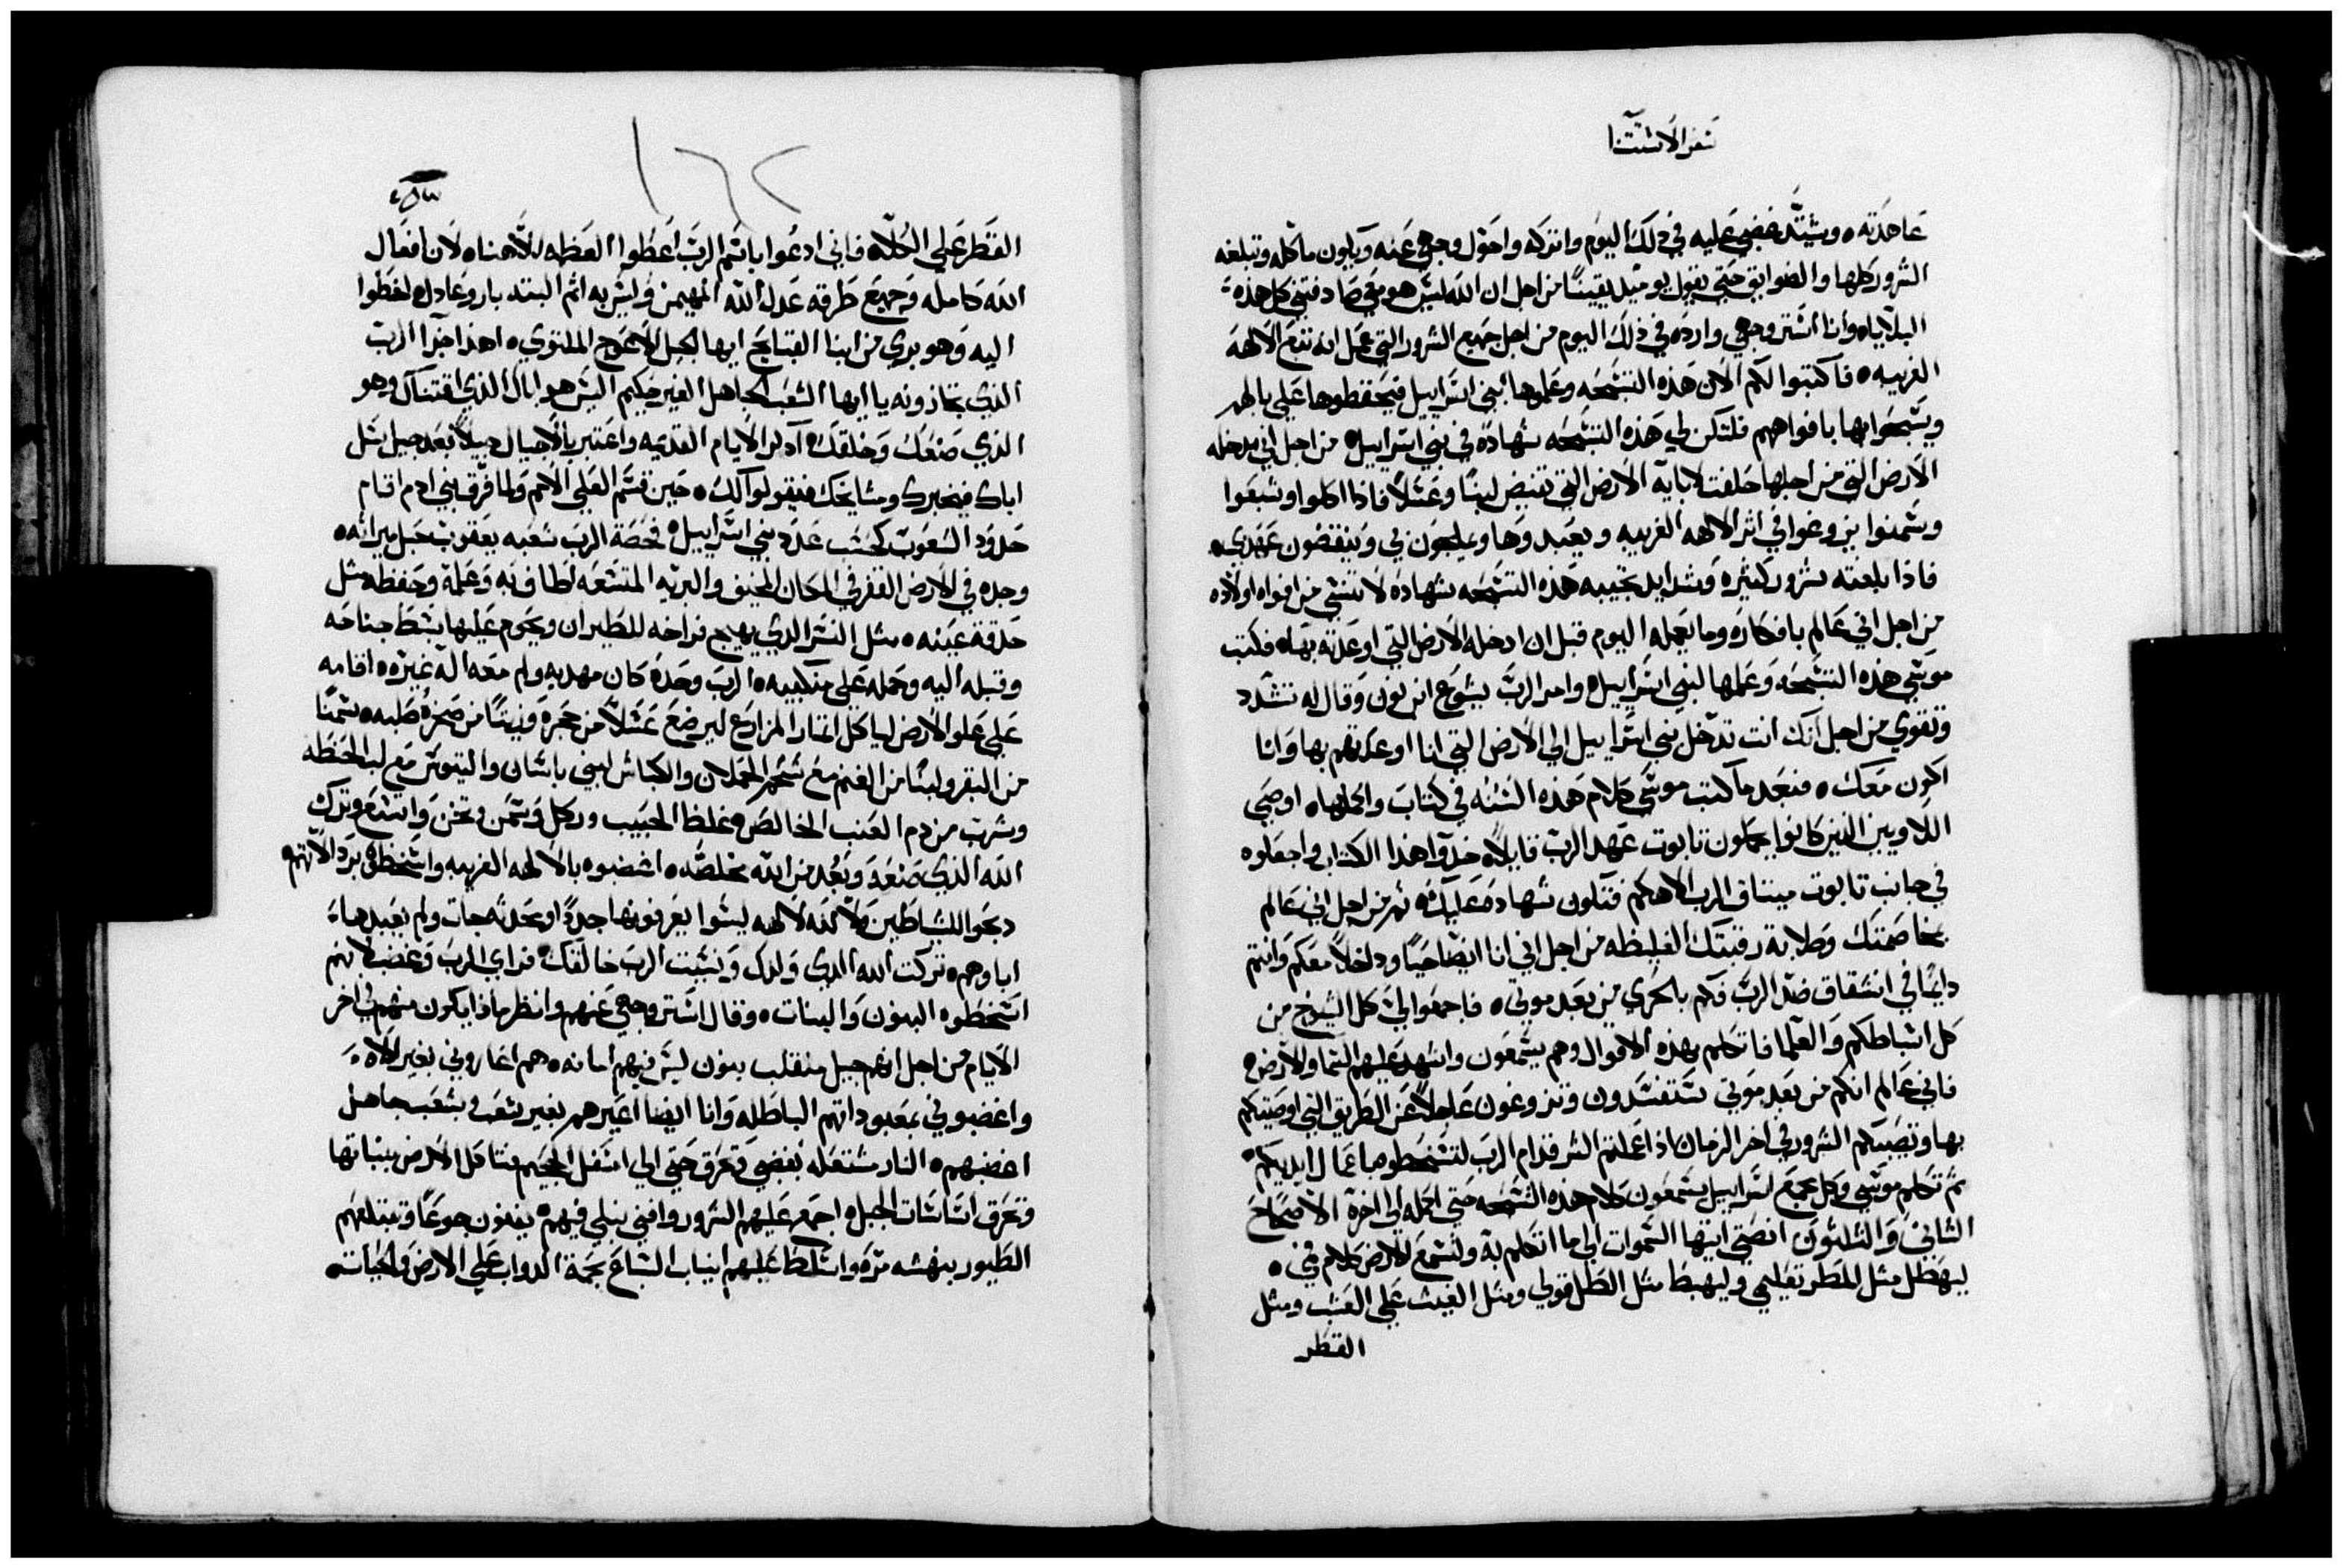 سفر الاستثنا
عاهدته ه ويشتد غضبي عليه في ذلك اليوم واتركه واحول وجهي عنه ويكون ماكله وتبلغه
الشرور كلها والضوايق حتي يقول يوميذ يقينًا من اجل ان الله ليس هو معي صادفتني كل هذه
البلايا ه وانا استر وجهي وارده في ذلك اليوم من اجل جميع الشرور التي عمل انه تتبع الالهه
الغريبه ه فاكتبوا لكم الان هذه التسبحه وعلموها لبني اسراييل فيحفظوها علي بالهم
ويسبحوا بها بافواههم فلتكن لي هذه التسبحه شهادة في بني اسراييل ه من اجل اني مدخله
الارض التي من اجلها حلفت لابايه الارض التي تفيض لبنًا وعسلًا فاذا اكلوا وشبعوا
وسمنوا يزوغوا في اثر الالهه الغريبه ويعبدوها ويلجون بي وينقضون عهدي ه
فاذا بلغته شرور كثيره وشدايد تجيبه هذه التسبحه شهاده لا تنسي من افواه اولاده
من اجل اني عالم بافكاره وما يعمله اليوم قبل ان ادخله الارض التي اوعدته بها ه فكتب
موسي هذه التسبحه وعلمها لبني اسراييل ه وامر الرب يشوع ابن نون وقال له تشدد
وتقوي من اجل انك انت تدخل بني اسراييل الي الارض التي انا اوعدتهم بها وانا
اكون معك ه فبعد ما كتب موسي كلام هذه السنه في كتاب واكملها ه اوصي
اللاويين الذين كانوا يحملون تابوت عهد الرب قايلًا ه خذوا هذا الكتاب واجعلوه
في جانب تابوت ميثاق الرب الاهكم فتكون شهاده عليك ه ثم من اجل اني عالم
بخاصمتك وصلابة رقبتك الغليظه من اجل اني انا ايضًا حيًا وداخلًا معكم وانتم
دايمًا في انشقاق ضد الرب فكم بالحري من بعد موتي ه فاجمعوا الي كل الشيوخ من
كل اسباطكم والعلما فاتكلم بهذه الاقوال وهم يسمعون واشهد عليهم السما والارض ه
فاني عالم انكم من بعد موتي ستفسدون وتزوغون عاجلًا عن الطريق التي اوصيتكم
بها وتصيبكم الشرور في اخر الزمان اذا عملتم الشر قدام الرب لتسخطوه باعمال ايديكم ه
ثم تكلم موسي وكل مجمع اسراييل يسمعون كلام هذه التسبحه حتي اكمله الي اخره الاصحاح
الثاني والثلثون انصتي ايتها السموات الي ما اتكلم به ولتسمع الارض كلام في ه
ليهطل مثل المطر تعليمي وليهبط مثل الطل قولي ومثل الغيث علي العشب ومثل
القطر
١٦٢
القطر علي الكلا ه فاني ادعوا باسم الرب اعطوا العظمه لالاهنا ه لان افعال
الله كامله وجميع طرقه عدل الله المهيمن وليس به اثم البته بار وعادل ه اخطوا
اليه وهو بري من ابنا القبايح ايها الجيل الاعوج الملتوي ه اهذا اجزا الرب
الذي تجازونه يا ايها الشعب الجاهل الغير حكيم اليس هو اباك الذي اقتناك وهو
الذي صنعك وخلقك ه اذكر الايام القديمه واعتبر بالاجيال جيلًا بعد جيل سل
اباك فيخبرك ومشايخك فيقولوا لك ه حين قسم العلي الامم ولما فرق بني ادم اقام
حدود الشعوب كحسب عدد بني اسراييل ه فحصة الرب شعبه يعقوب حبل ميراثه ه
وجده في الارض القفر في المكان المخيف والبريه المتسعه اطاف به وعلمه وحفظه مثل
حدقة عينه ه مثل النسر الذي يهيج فراخه للطيران ويحوم عليها بسط جناحه
وقبله اليه وحمله علي منكبيه ه الرب وحده كان مهديه ولم معه اله غيره ه اقامه
علي علو الارض لياكل اثمار المزارع ليرضع عسلًا من حجره وزيتًا من صخرة صلبه ه سمنًا
من البقر ولبنًا من الغنم مع شحم الحملان والكباش ابني باشان والتيوس مع لب الحنطه
وشرب من دم العنب الخالص ه غلظ الحبيب وركل وسمن وثخن واتسع وترك
الله الذي صنعه وبعد من الله مخلصه ه اغضبوه بالالهه الغريبه واسخطوه برذالاتهم
دبحوا للشياطين لا لله لالهه ليسوا يعرفونها جددًا وحدثه جات ولم يعبدها
اباوهم ه تركت الله الذي ولدك ونسيت الرب خالقك ه فراي الرب وغضب لانهم
اسخطوه البنون والبنات ه وقال استر وجهي عنهم وانظر ماذا يكون منهم في اخر
الايام من اجل انهم جيل منقلب بنون ليس فيهم امانه ه هم اغاروني بغير الاه
واغضبوني بمعبوداتهم الباطله وانا ايضا اغيرهم بغير شعب وبشعب جاهل
اغضبهم ه النار مشتعله بغضبي وتحرق حتي الي اسفل الجحيم فتاكل الارض بنباتها
وتحرق اساسات الجبل ه اجمع عليهم الشرور وافني نبلي فيهم ه يفنون جوعًا وتبتلعهم
الطيور بنهشه مره واسلط عليهم انياب السباع بحمة الدواب علي الارض والحيات ه